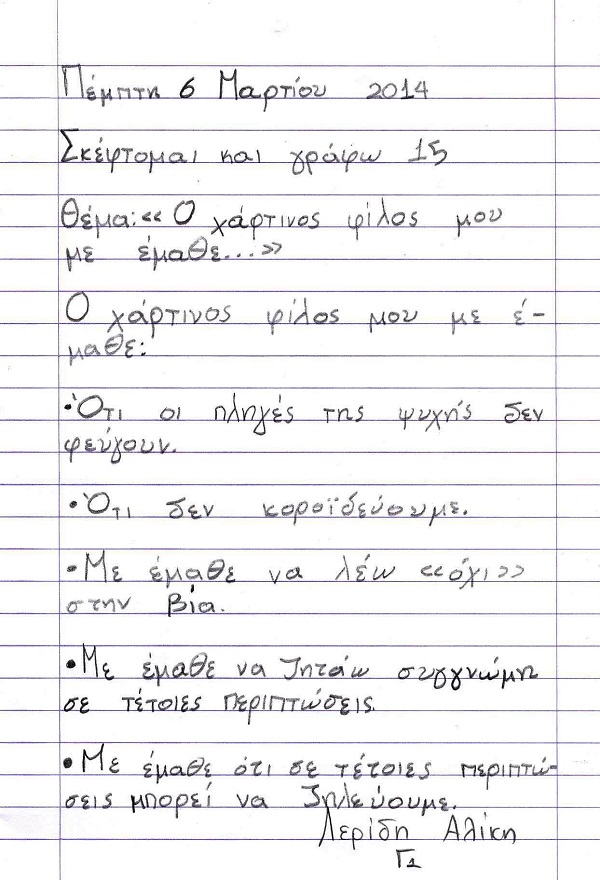 Πέμπτη 6 Μαρτίου 2014
Σκέφτομαι και γράφω 15
Θέμα:«Ο χάρτινος φίλος μου
με έμαθε...»
Ο χάρτινος φίλος μου με έ-
μαθε:
•Ότι οι πληγές της ψυχής δεν
φεύγουν.
•Ότι δεν κοροϊδεύουμε.
•Με έμαθε να λέω «όχι»
στην βία.
•Με έμαθε να ζητάω συγγνώμη
σε τέτοιες περιπτώσεις.
•Με έμαθε ότι σε τέτοιες περιπτώ-
σεις μπορεί να ζηλεύουμε.
Λερίδη Αλίκη
Γ1